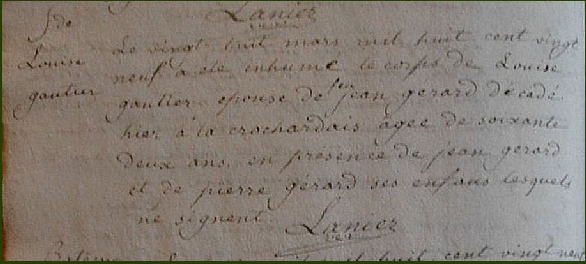 Lanier
S de
Louise
gautier
Le vingt huit mars mil huit cent vingt
neuf a été inhumé le corps de Louise
gautier epouse de feu jean gerard décédé
hier à la crochardais agée de soixante
deux ans, en présence de jean gerard
et de pierre gérard ses enfans lesquels
ne signent.
Lanier
mil huit cent vingt neuf